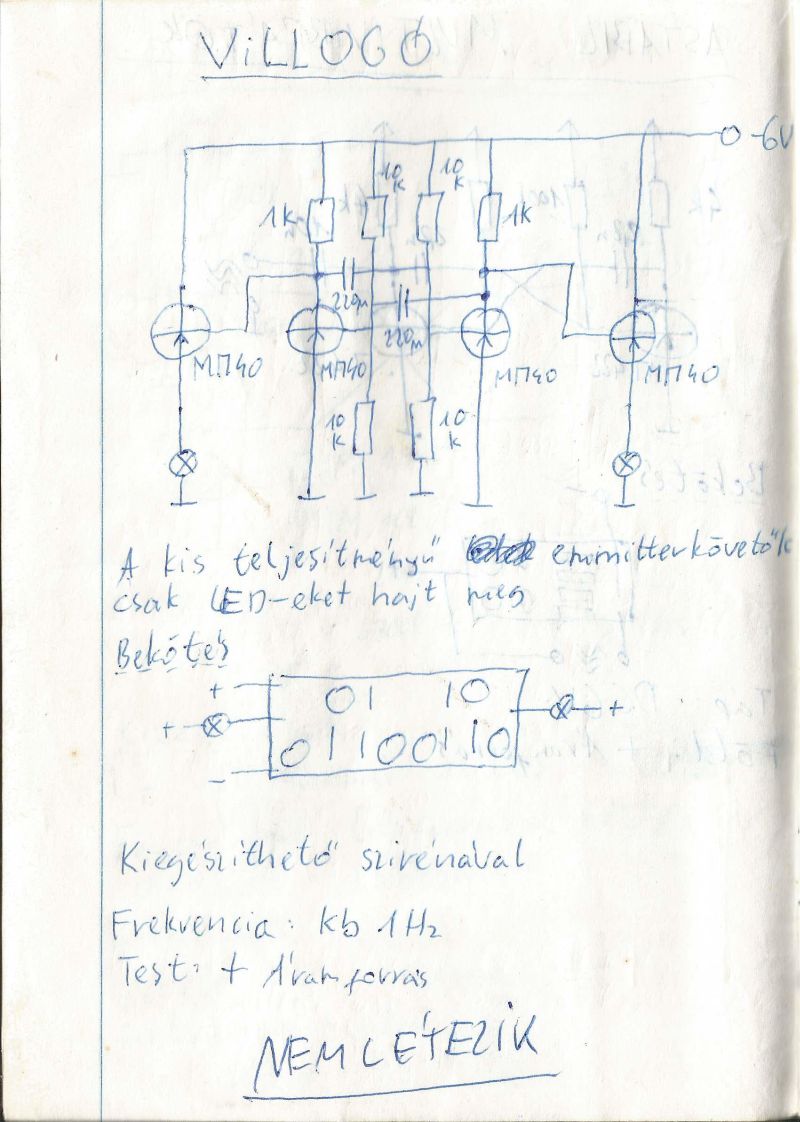 VILLOGÓ
-6V
10k
10k
1k
1k
220µ
220µ
МП40
МП40
МП40
МП40
10k
10k
A kis teljesítményű emmitterkövetők
csak LED-eket hajt meg
Bekötés
+
+
+
-
Kiegészíthető szirénával
Frekvencia: kb 1Hz
Test: + Áramforrás
NEM LÉTEZIK